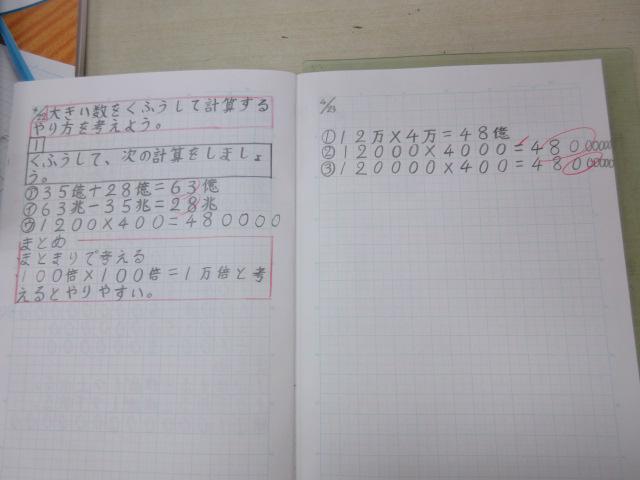 4/22 大きい数をくふうして計算する
やり方を考えよう。
1
くふうして、次の計算をしましょ
う。
㋐35億+28億=63億
㋑63兆-35兆=28兆
㋒1200×400=480000
まとめ
まとまりで考える
100倍×100倍=1万倍と考
えるとやりやすい。
4/23
①12万×4万=48億
②12000×4000=48000000
③120000×400=48000000